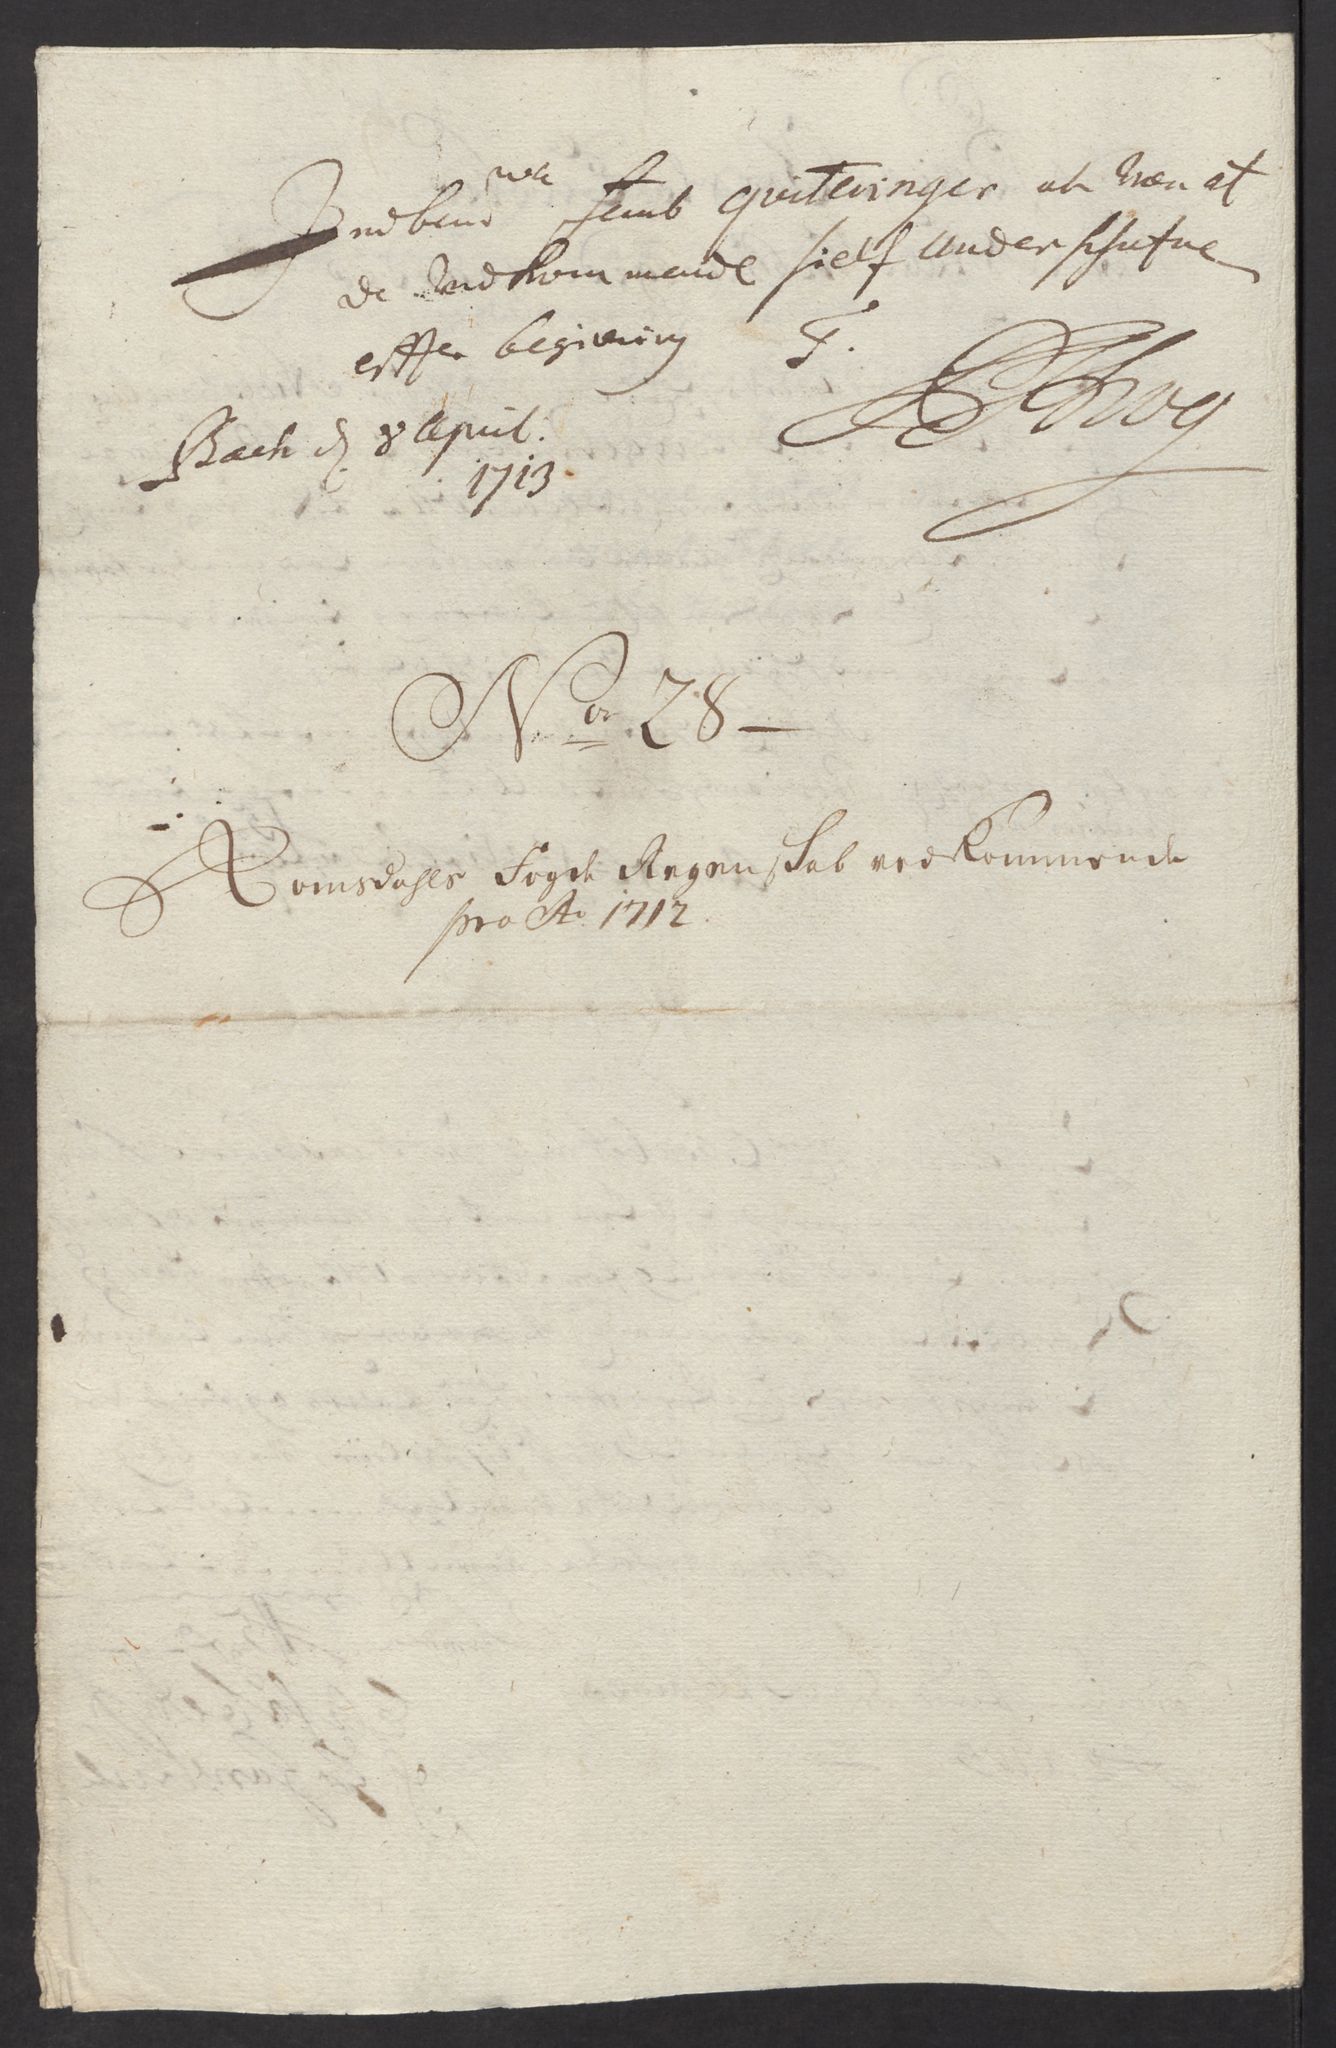 Indben te femb qviteringer at være at
de Vedkommende sielf Underschrefne
effter begiering T.
Bach d 8 April:
1713
SKrog
No 28
Romsdahls Fogde Regenskab vedkommende
pro Ao 1712.